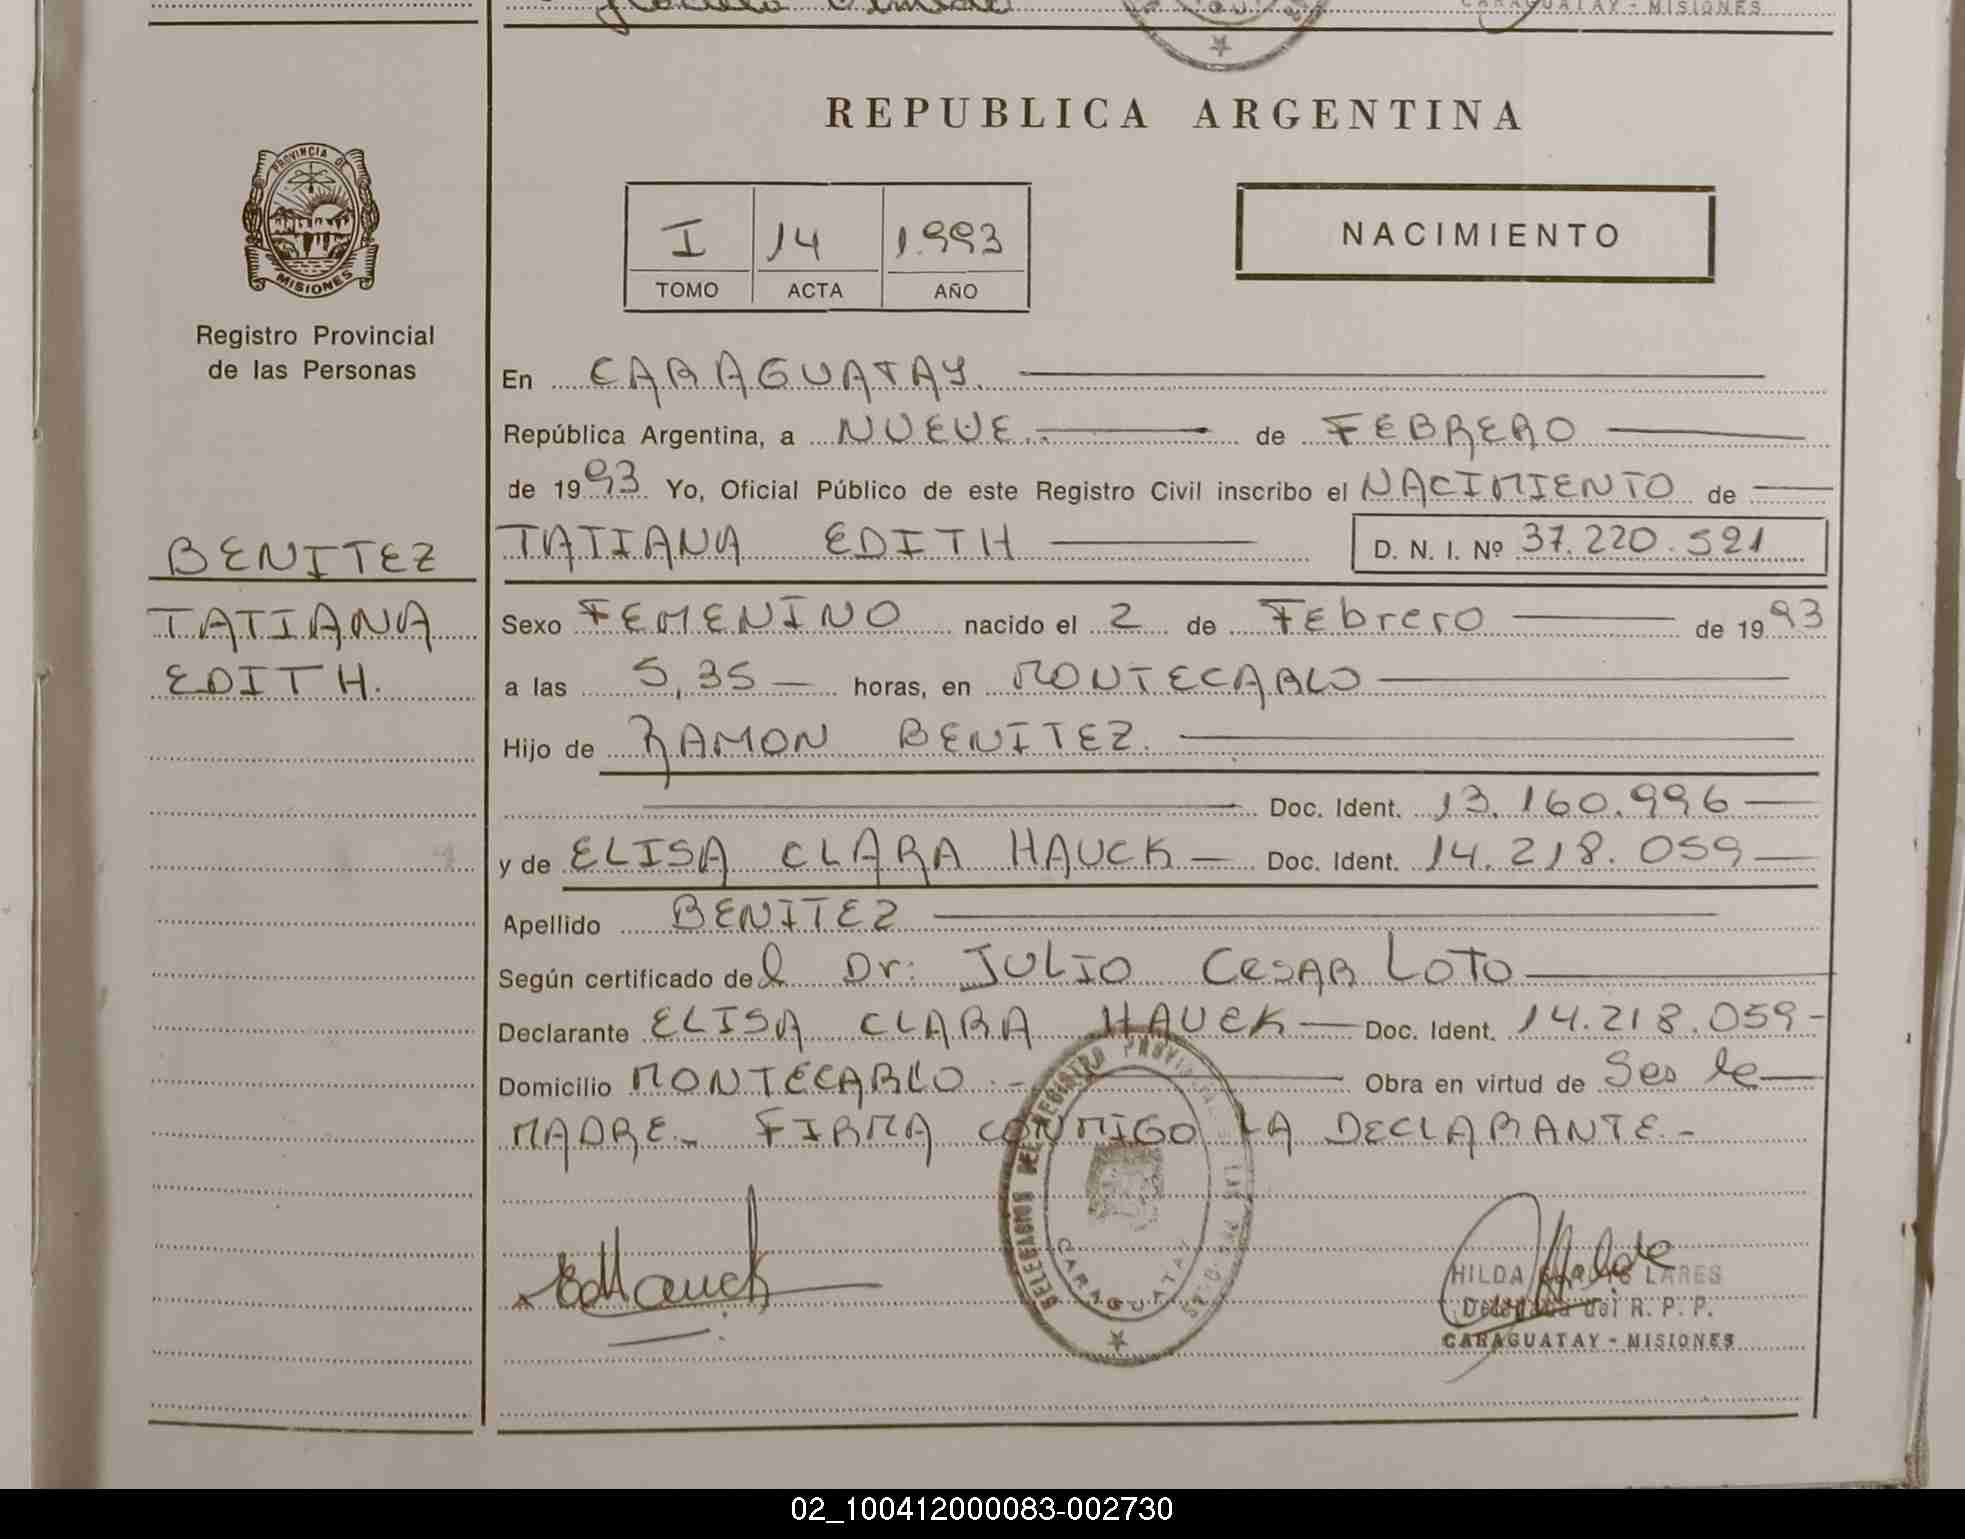 CARAGUATAY - MISIONES
REPUBLICA ARGENTINA
PROVINCIA DE
MISIONES
Registro Provincial
de las Personas
I 14 1.993
TOMO ACTA AÑO
NACIMIENTO
En CARAGUATAY.
República Argentina, a NUEVE.. de FEBRERO
de 1993. Yo, Oficial Público de este Registro Civil inscribo el NACIMIENTO de
BENITEZ
TATIANA EDITH D. N. I. Nº 37.220.521
TATIANA
EDITH.
Sexo FEMENINO nacido el 2 de FEbrero de 1993
a las 5,35 — horas, en MONTECARLO
Hijo de RAMON BENITEZ.
Doc. Ident. 13.160.996 —
y de ELISA CLARA HAUCK — Doc. Ident. 14.218.059 —
Apellido BENITEZ
Según certificado del Dr: JULIO CESAR LOTO
Declarante ELISA CLARA HAUCK — Doc. Ident. 14.218.059 -
Domicilio MONTECARLO .- Obra en virtud de Ser la
MADRE.- FIRMA CONMIGO LA DECLARANTE.-
DELEGACION DEL REGISTRO PROVINCIAL DE LAS PERSONAS
CARAGUATAY
EcHauck
HILDA LARES
Delegada del R. P. P.
CARAGUATAY - MISIONES
02_100412000083-002730